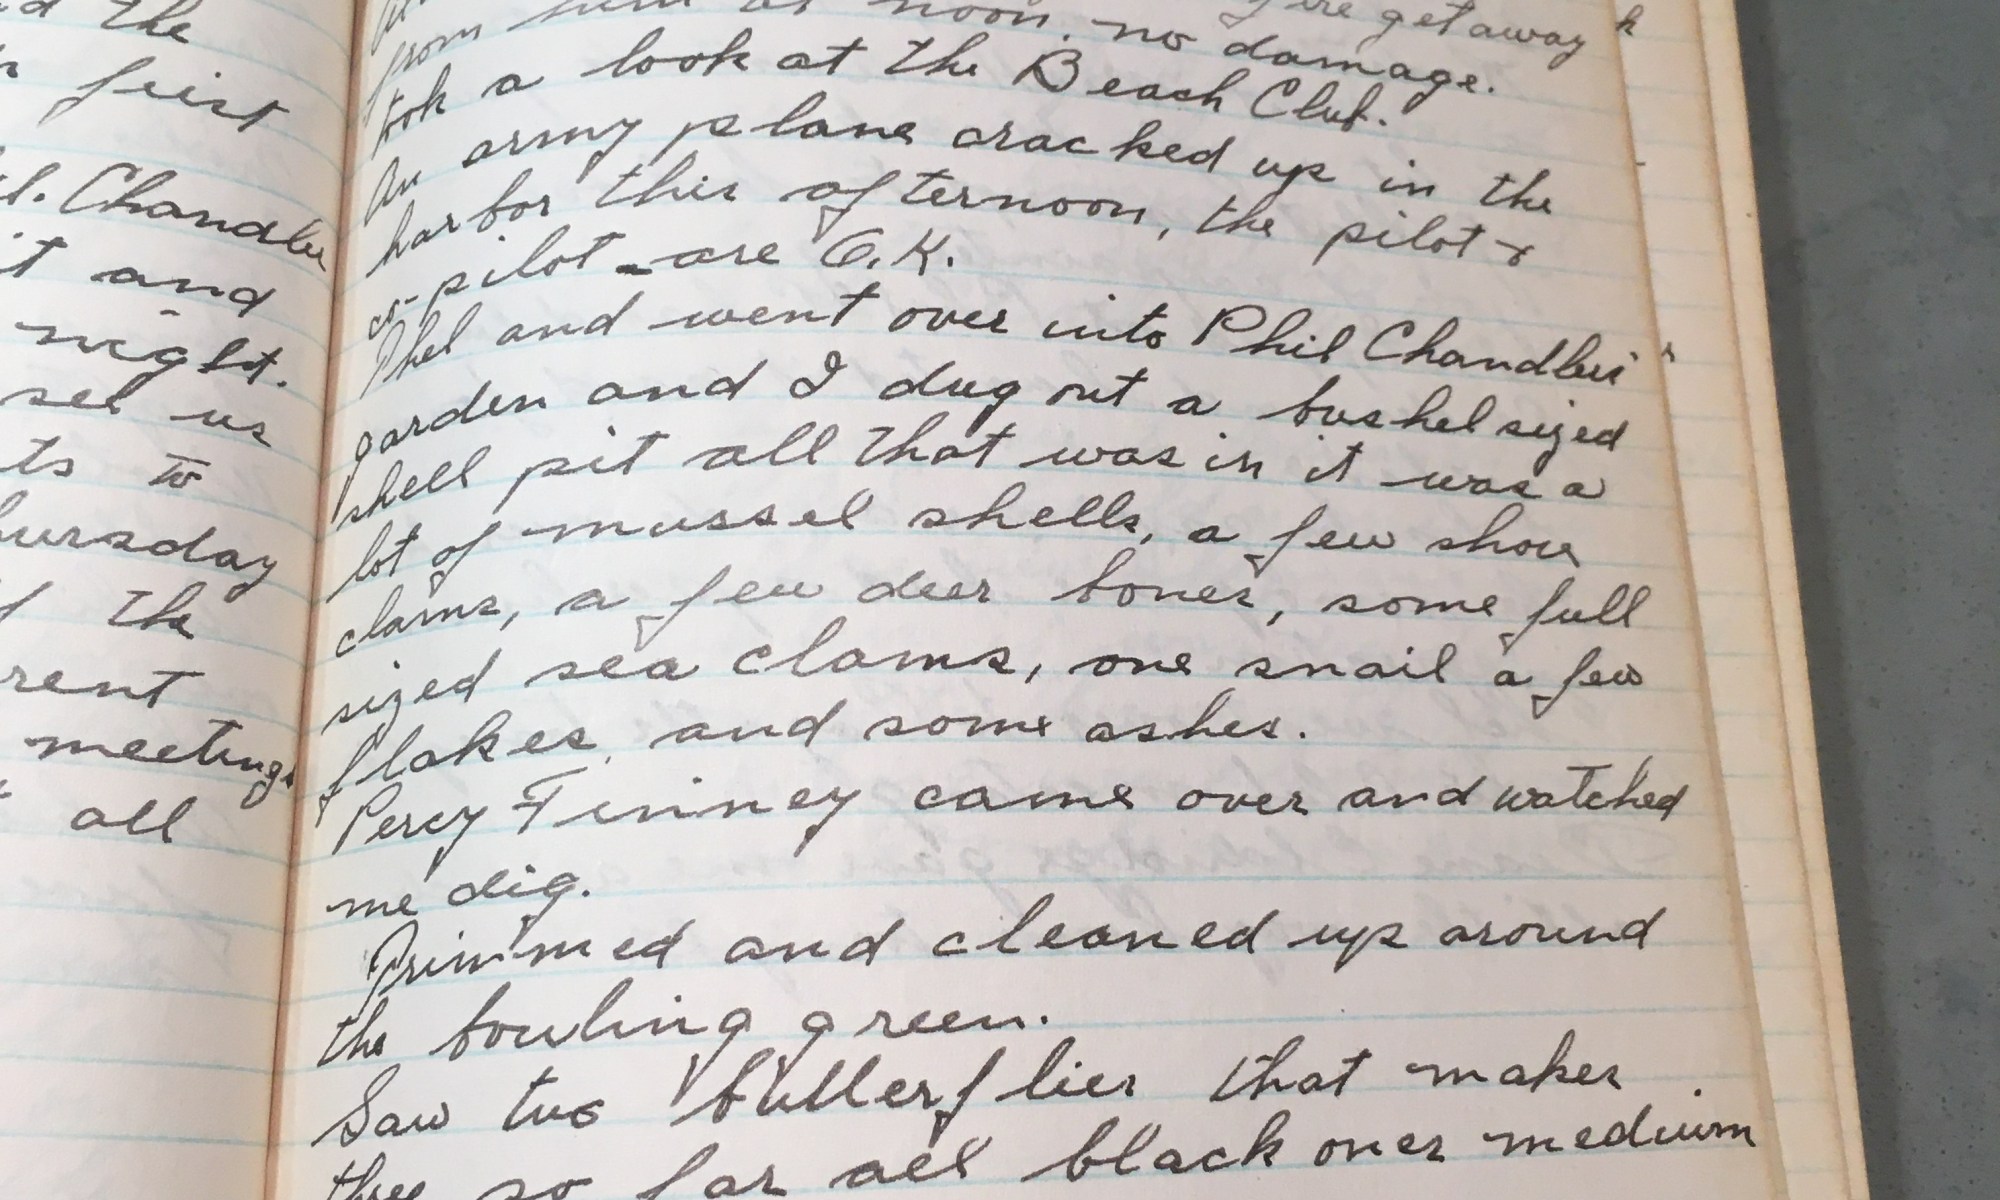 d the
first
l. Chandler
it and
night.
see us
ts to
ursday
the
rent
meetings
all
fire get away
from him at noon, no damage.
took a look at the Beach Club.
An army plane cracked up in the
harbor this afternoon, the pilot &
co-pilot - are O.K.
Phel and went over into Phil Chandler's
garden and I dug out a bushel sized
shell pit all that was in it was a
lot of mussel shells, a few shore
clams, a few deer bones, some full
sized sea clams, one snail a few
flakes, and some ashes.
Percy Tinney came over and watched
me dig.
Trimmed and cleaned up around
the bowling green.
Saw two butterflies that makes
three so far all black ones medium